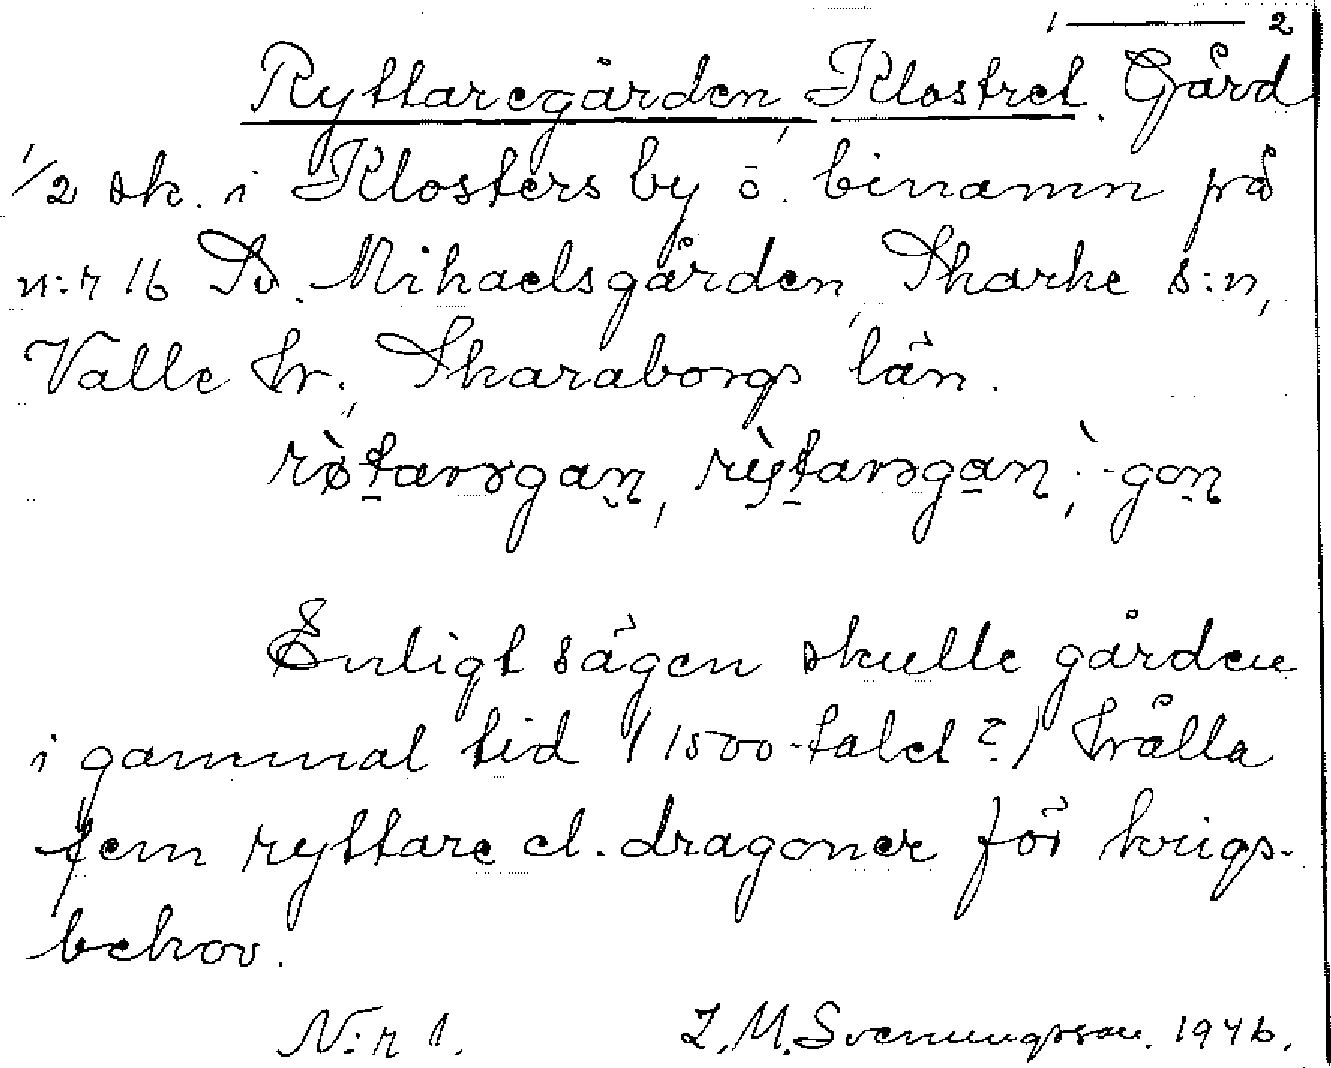 1 — 2
Ryttaregården, Klostret. Gård
1/2 sk. i Klosters by o. binamn på
n:r 16 Mihaelsgården, Skarke s:n,
Valle hr., Skaraborgs län.
Enligt sägen skulle gården
i gammal tid (1500-talet?) hålla
fem ryttare el. dragoner för krigs-
behov.
N:r 1. L.M. Svenungsson. 1946.